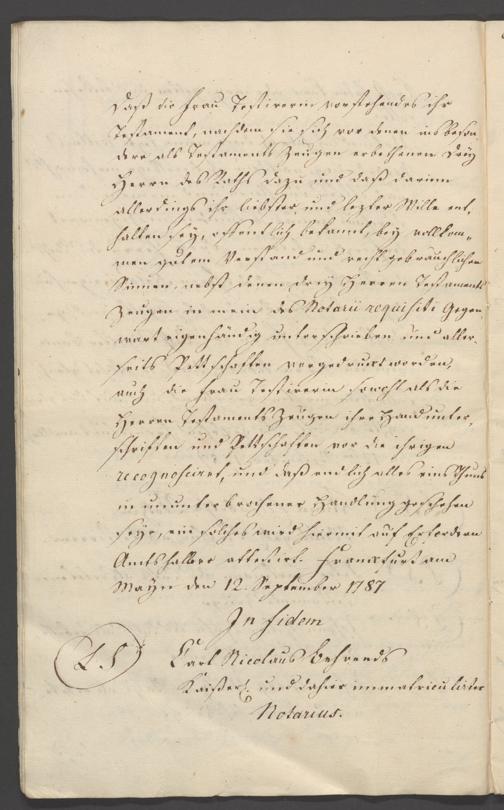 Daß die Frau Testirerin vorstehendes ihr
Testament, nachdem sie sich vor denen ins beson
dere als Testaments Zeugen erbethenen drey
Herren des Raths dazu und daß darinn
allerdings ihr liebster und lezter Wille ent,
halten sey, offentlich bekannt, bey vollkom„
men gutem Verstand und recht gebräuchlichen
Sinnen, nebst denen drey Herren Testaments
Zeugen in mein des Notarii requisiti Gegen
wart eigenhändig unterschrieben und aller,
seits Pettschaften vorgedruckt worden,
auch die Frau Testirerin sowohl als die
Herren Testaments Zeugen ihre Handunter,
schriften und Pettschaften vor die ihrigen
recognosciret, und daß endlich alles eins Thuns
in ununterbrochener Handlung geschehen
seye, ein solches wird hiermit auf Erfordern
Amtshalber attestirt. Franckfurt am
Mayn den 12. September 1787
In fidem
L S Carl Nicolaus Behrends
Kaißerl. und dahier immatriculirter
Notarius.